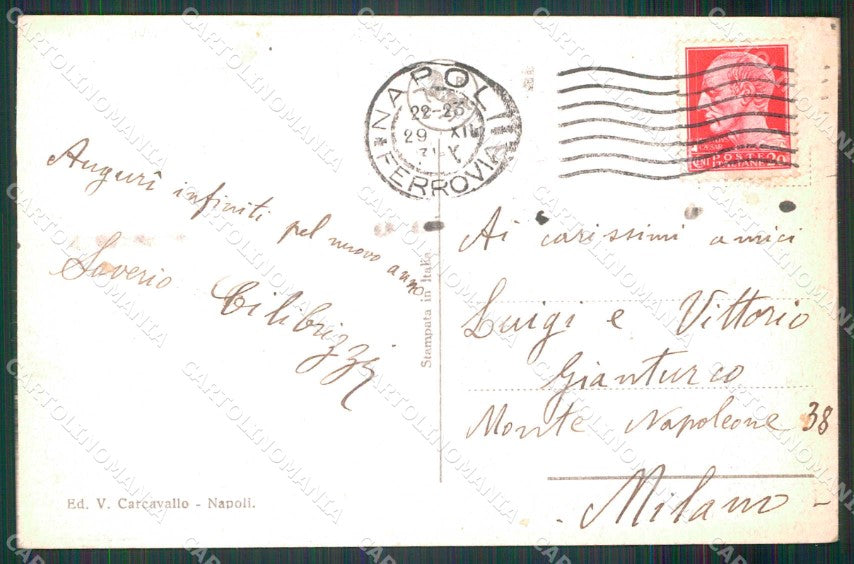 NAPOLI
22-23
29 XII
FERROVIA
POSTE
Auguri infiniti pel nuovo anno
Saverio Cilibrizzi
Stampata in Italia
Ai carissimi amici
Luigi e Vittorio
Gianturco
Monte Napoleone 38
- Milano -
Ed. V. Carcavallo - Napoli.
CARTOLINOMANIA